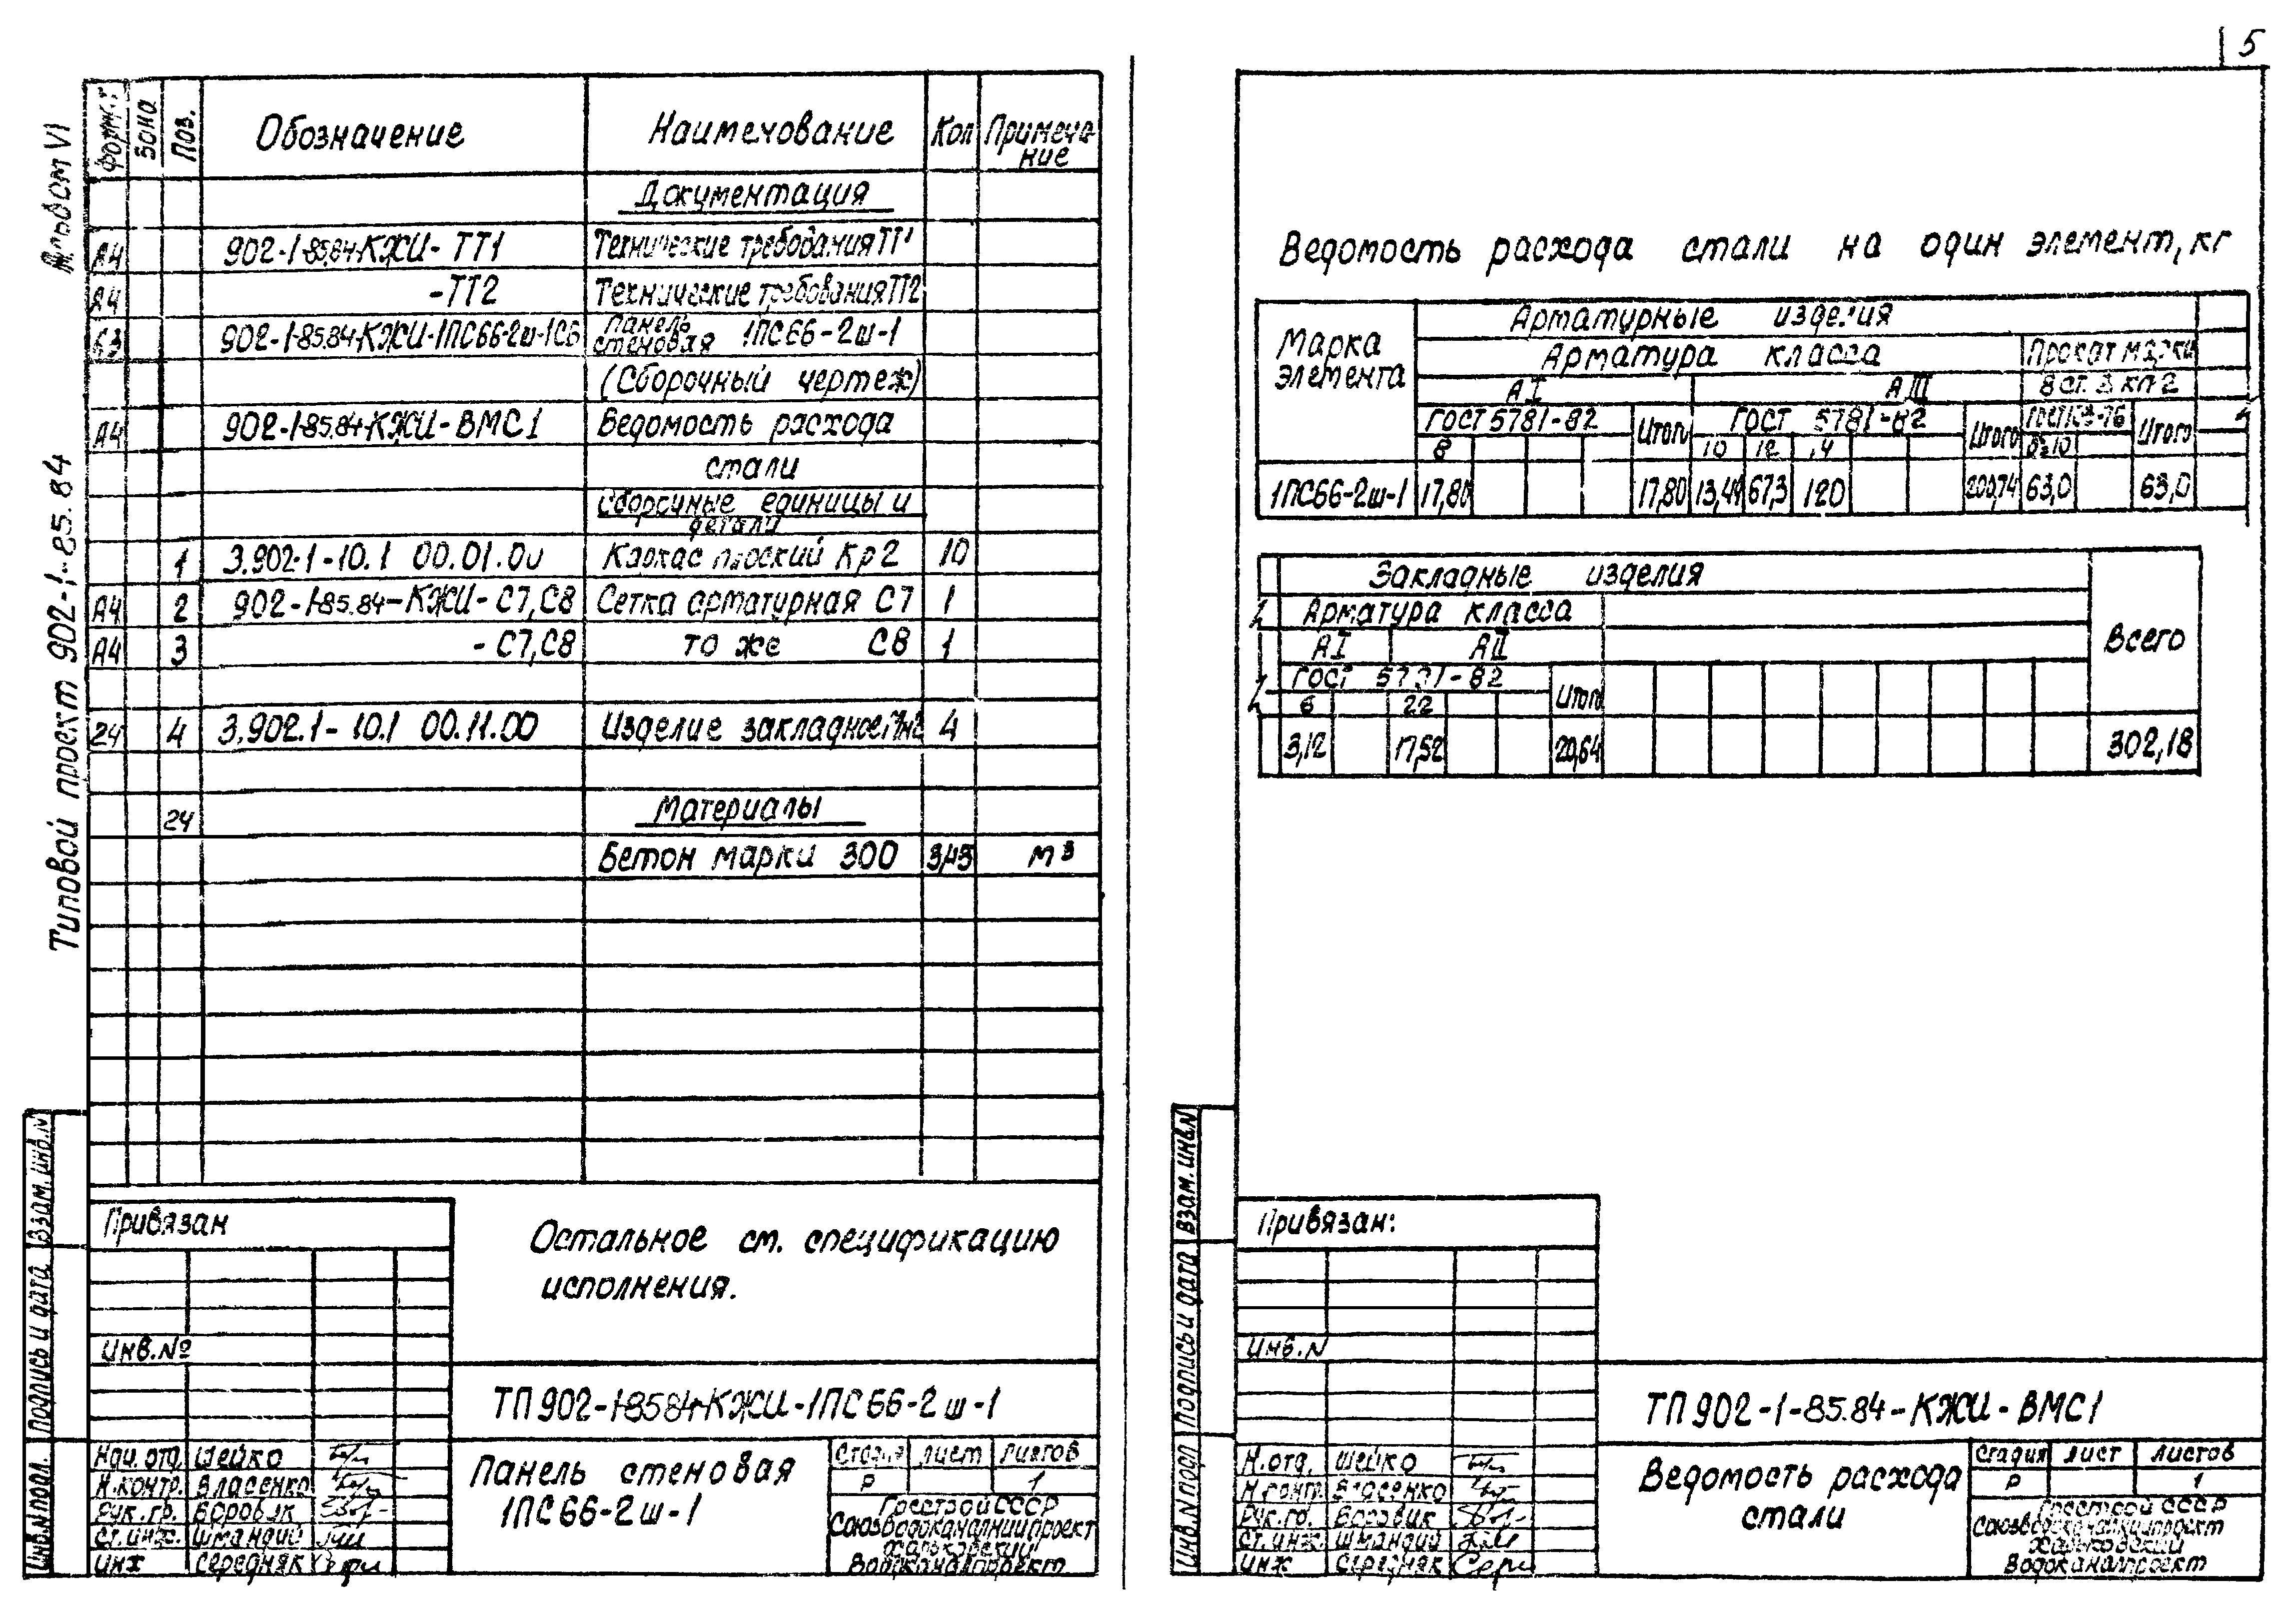 5
Альбом VI
Типовой проект 902-1-85.84
Формат Зона Поз. Обозначение Наименование Кол Примечание
Документация
А4 902-1-85.84-КЖИ-ТТ1 Технические требования ТТ1
А4 -ТТ2 Технические требования ТТ2
А3 902-1-85.84-КЖИ-1ПС66-2ш-1СБ Панель стеновая 1ПС66-2ш-1
(Сборочный чертеж)
А4 902-1-85.84-КЖИ-ВМС1 Ведомость расхода
стали
Сборочные единицы и
детали
1 3.902.1-10.1 00.01.00 Каркас плоский Кр2 10
А4 2 902-1-85.84-КЖИ-С7,С8 Сетка арматурная С7 1
А4 3 -С7,С8 то же С8 1
24 4 3.902.1-10.1 00.11.00 Изделие закладное 4
24 Материалы
Бетон марки 300 3,43 м³
Привязан
Инв.№
Остальное см. спецификацию
исполнения.
ТП 902-1-85.84-КЖИ-1ПС66-2ш-1
Нач. отд. Шейко
Н.контр. Власенко
Рук. гр. Боровик
Ст.инж. Шмандий
Инж Середняк
Панель стеновая
1ПС66-2ш-1
Стадия Лист Листов
Р 1
Госстрой СССР
Союзводоканалниипроект
Харьковский
Водоканалпроект
Инв.N подл. Подпись и дата Взам. инв.N
Ведомость расхода стали на один элемент, кг
Марка элемента
Арматурные изделия
Арматура класса Прокат марки
АI АIII ВСт.3 кп2
ГОСТ 5781-82 Итого ГОСТ 5781-82 Итого Итого
8 10 12 14 δ=10
1ПС66-2ш-1 17,80 17,80 13,44 67,3 120 200,74 63,0 63,0
Закладные изделия Всего
Арматура класса
АI АII
ГОСТ 5781-82 Итого
6 22
3,12 17,52 20,64 302,18
Привязан:
Инв.N
ТП 902-1-85.84-КЖИ-ВМС1
Н.отд. Шейко
Н.контр. Власенко
Рук.гр. Боровик
Ст.инж. Шмандий
Инж Середняк
Ведомость расхода
стали
Стадия Лист Листов
Р 1
Госстрой СССР
Союзводоканалниипроект
Харьковский
Водоканалпроект
Инв.N подл Подпись и дата Взам. инв.N